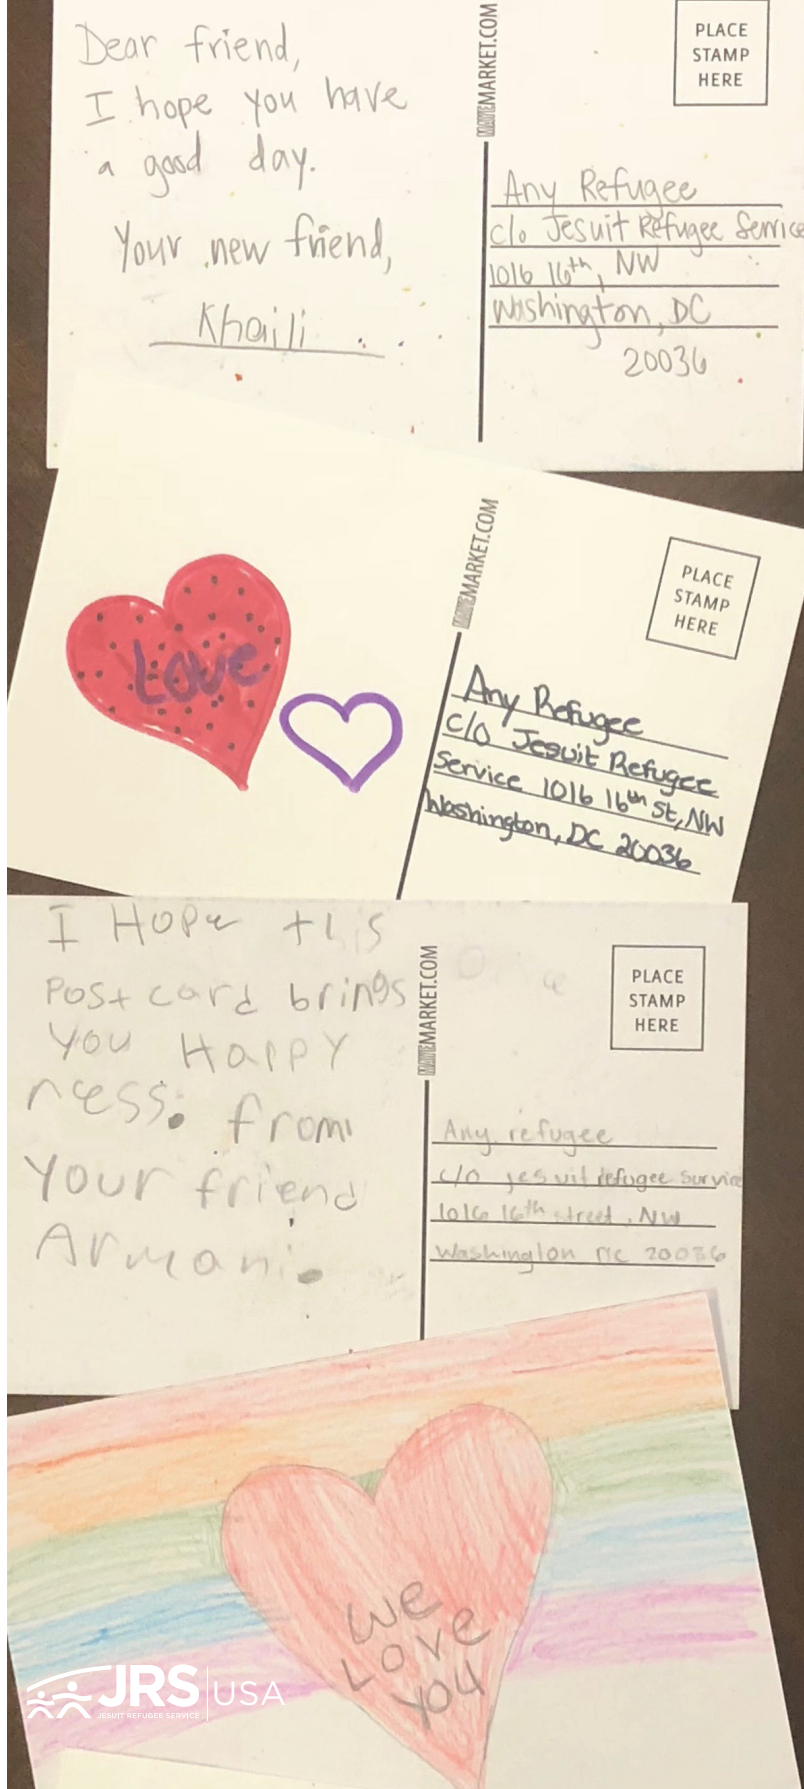 Dear friend,
I hope you have
a good day.
Your new friend,
Khaili
MARKET.COM
PLACE
STAMP
HERE
Any Refugee
c/o Jesuit Refugee Service
1016 16th, NW
Washington, DC
20036
Love
MARKET.COM
PLACE
STAMP
HERE
Any Refugee
c/o Jesuit Refugee
Service 1016 16th St, NW
Washington, DC 20036
I Hope this
Postcard brings
you Happy
ness. from
Your friend
Armani.
MARKET.COM
PLACE
STAMP
HERE
Any refugee
c/o jesuit refugee survice
1016 16th street, NW
Washington DC 20036
we
Love
you
JRS USA
JESUIT REFUGEE SERVICE